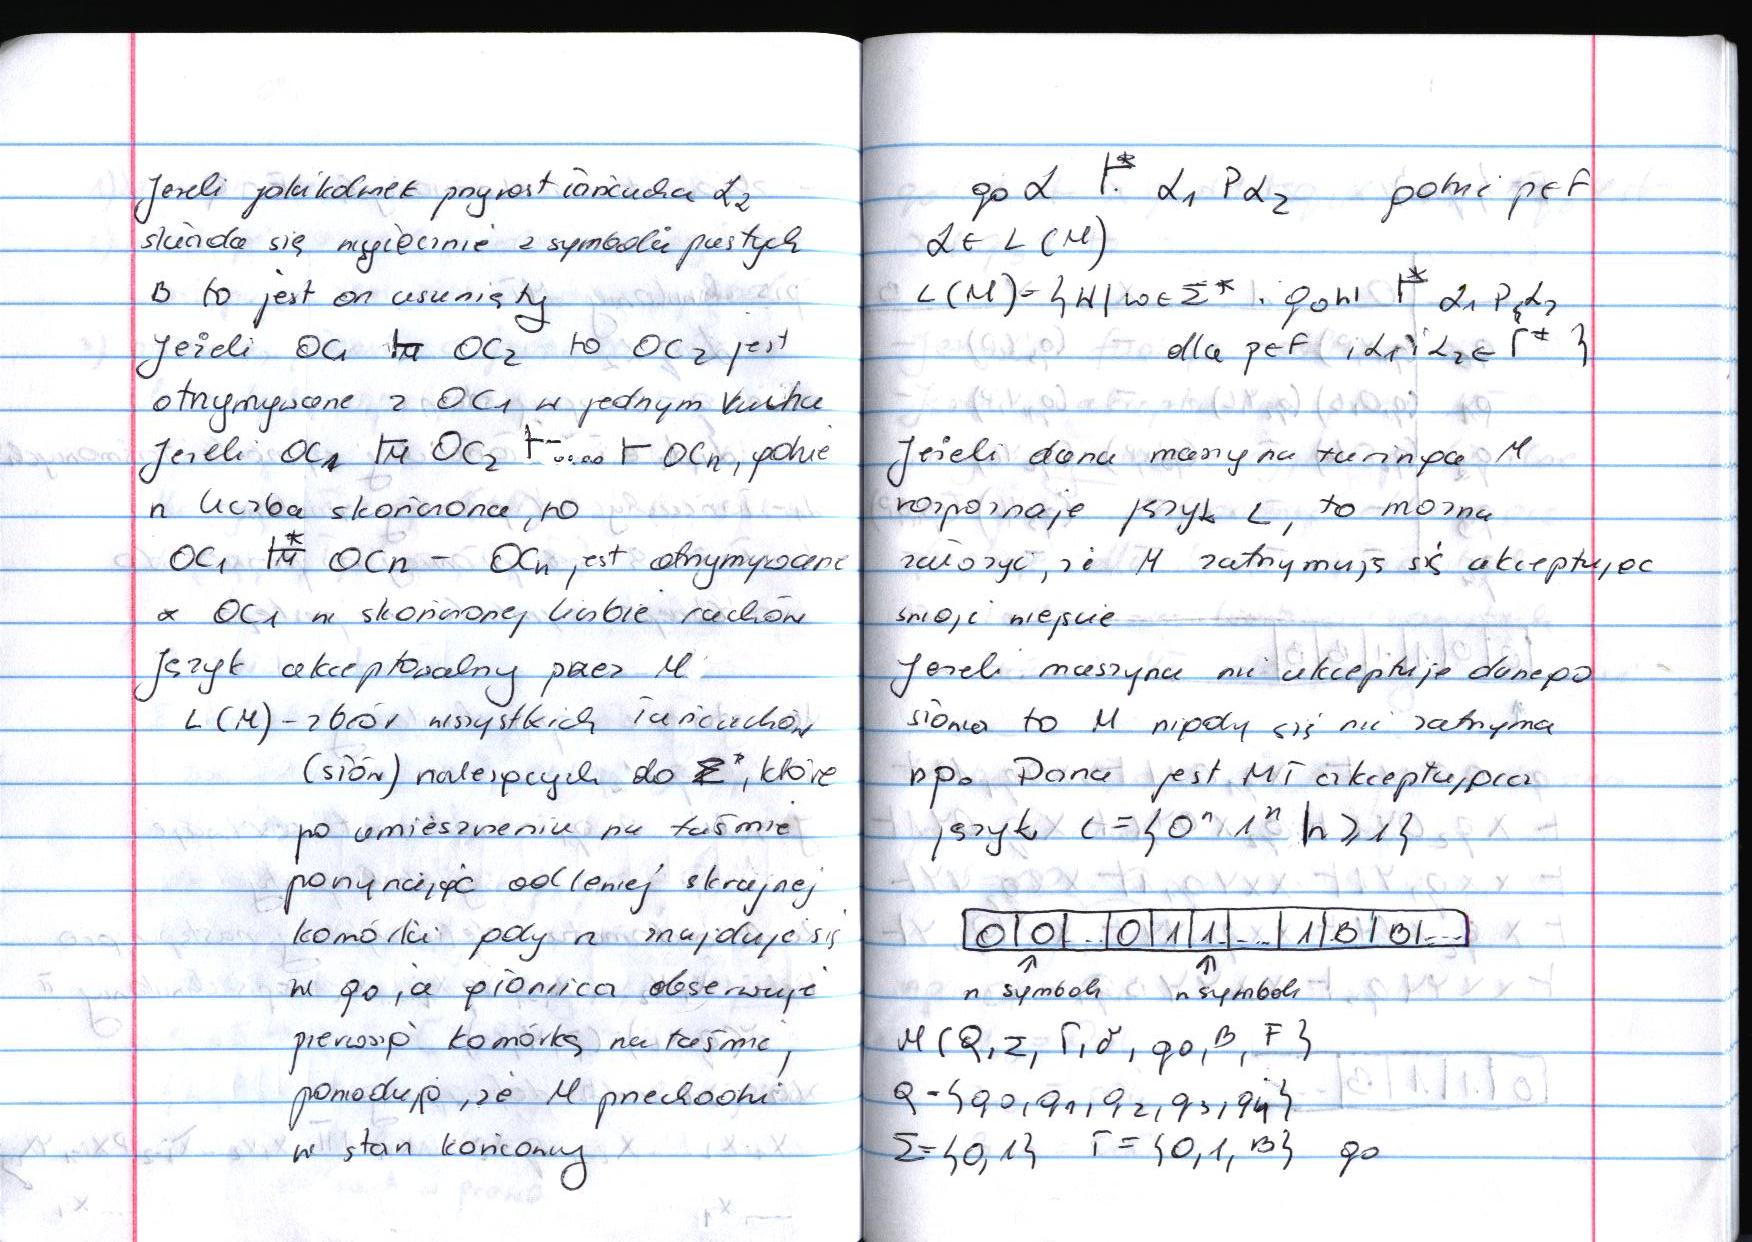 Jeżeli jakikolwiek przyrost łańcucha α2
składa się wyłącznie z symboli pustych
B to jest on usunięty
Jeżeli OC1 ⊢M OC2 to OC2 jest
otrzymywane z OC1 w jednym kroku
Jeżeli OC1 ⊢M OC2 ⊢ ..... ⊢ OCn, gdzie
n liczba skończona, to
OC1 ⊢*M OCn – OCn jest otrzymywane
z OC1 w skończonej liczbie ruchów
Język akceptowalny przez M
L(M) – zbiór wszystkich łańcuchów
(słów) należących do Σ*, które
po umieszczeniu na taśmie
począwszy od lewej skrajnej
komórki gdy znajduje się
w q0, a głowica obserwuje
pierwszą komórkę na taśmie,
powodują, że M przechodzi
w stan końcowy
q0 α ⊢* α1 P α2 gdzie p∈F
α∈ L(M)
L(M)={w| w∈Σ* . q0w ⊢* α1 P α2
dla p∈F i α1 i α2∈ Γ* }
Jeżeli dana maszyna turinga M
rozpoznaje język L, to można
założyć, że M zatrzymuje się akceptując
swoje wejście
Jeżeli maszyna nie akceptuje danego
słowa to M nigdy się nie zatrzyma
np. Dana jest MT akceptująca
język L={0ⁿ 1ⁿ |n ≥ 1}
0|0|...|0|1|1|...|1|B|B|...
n symboli n symboli
M(Q, Σ, Γ, δ, q0, B, F}
Q={q0, q1, q2, q3, q4}
Σ={0,1} Γ={0,1,B} q0